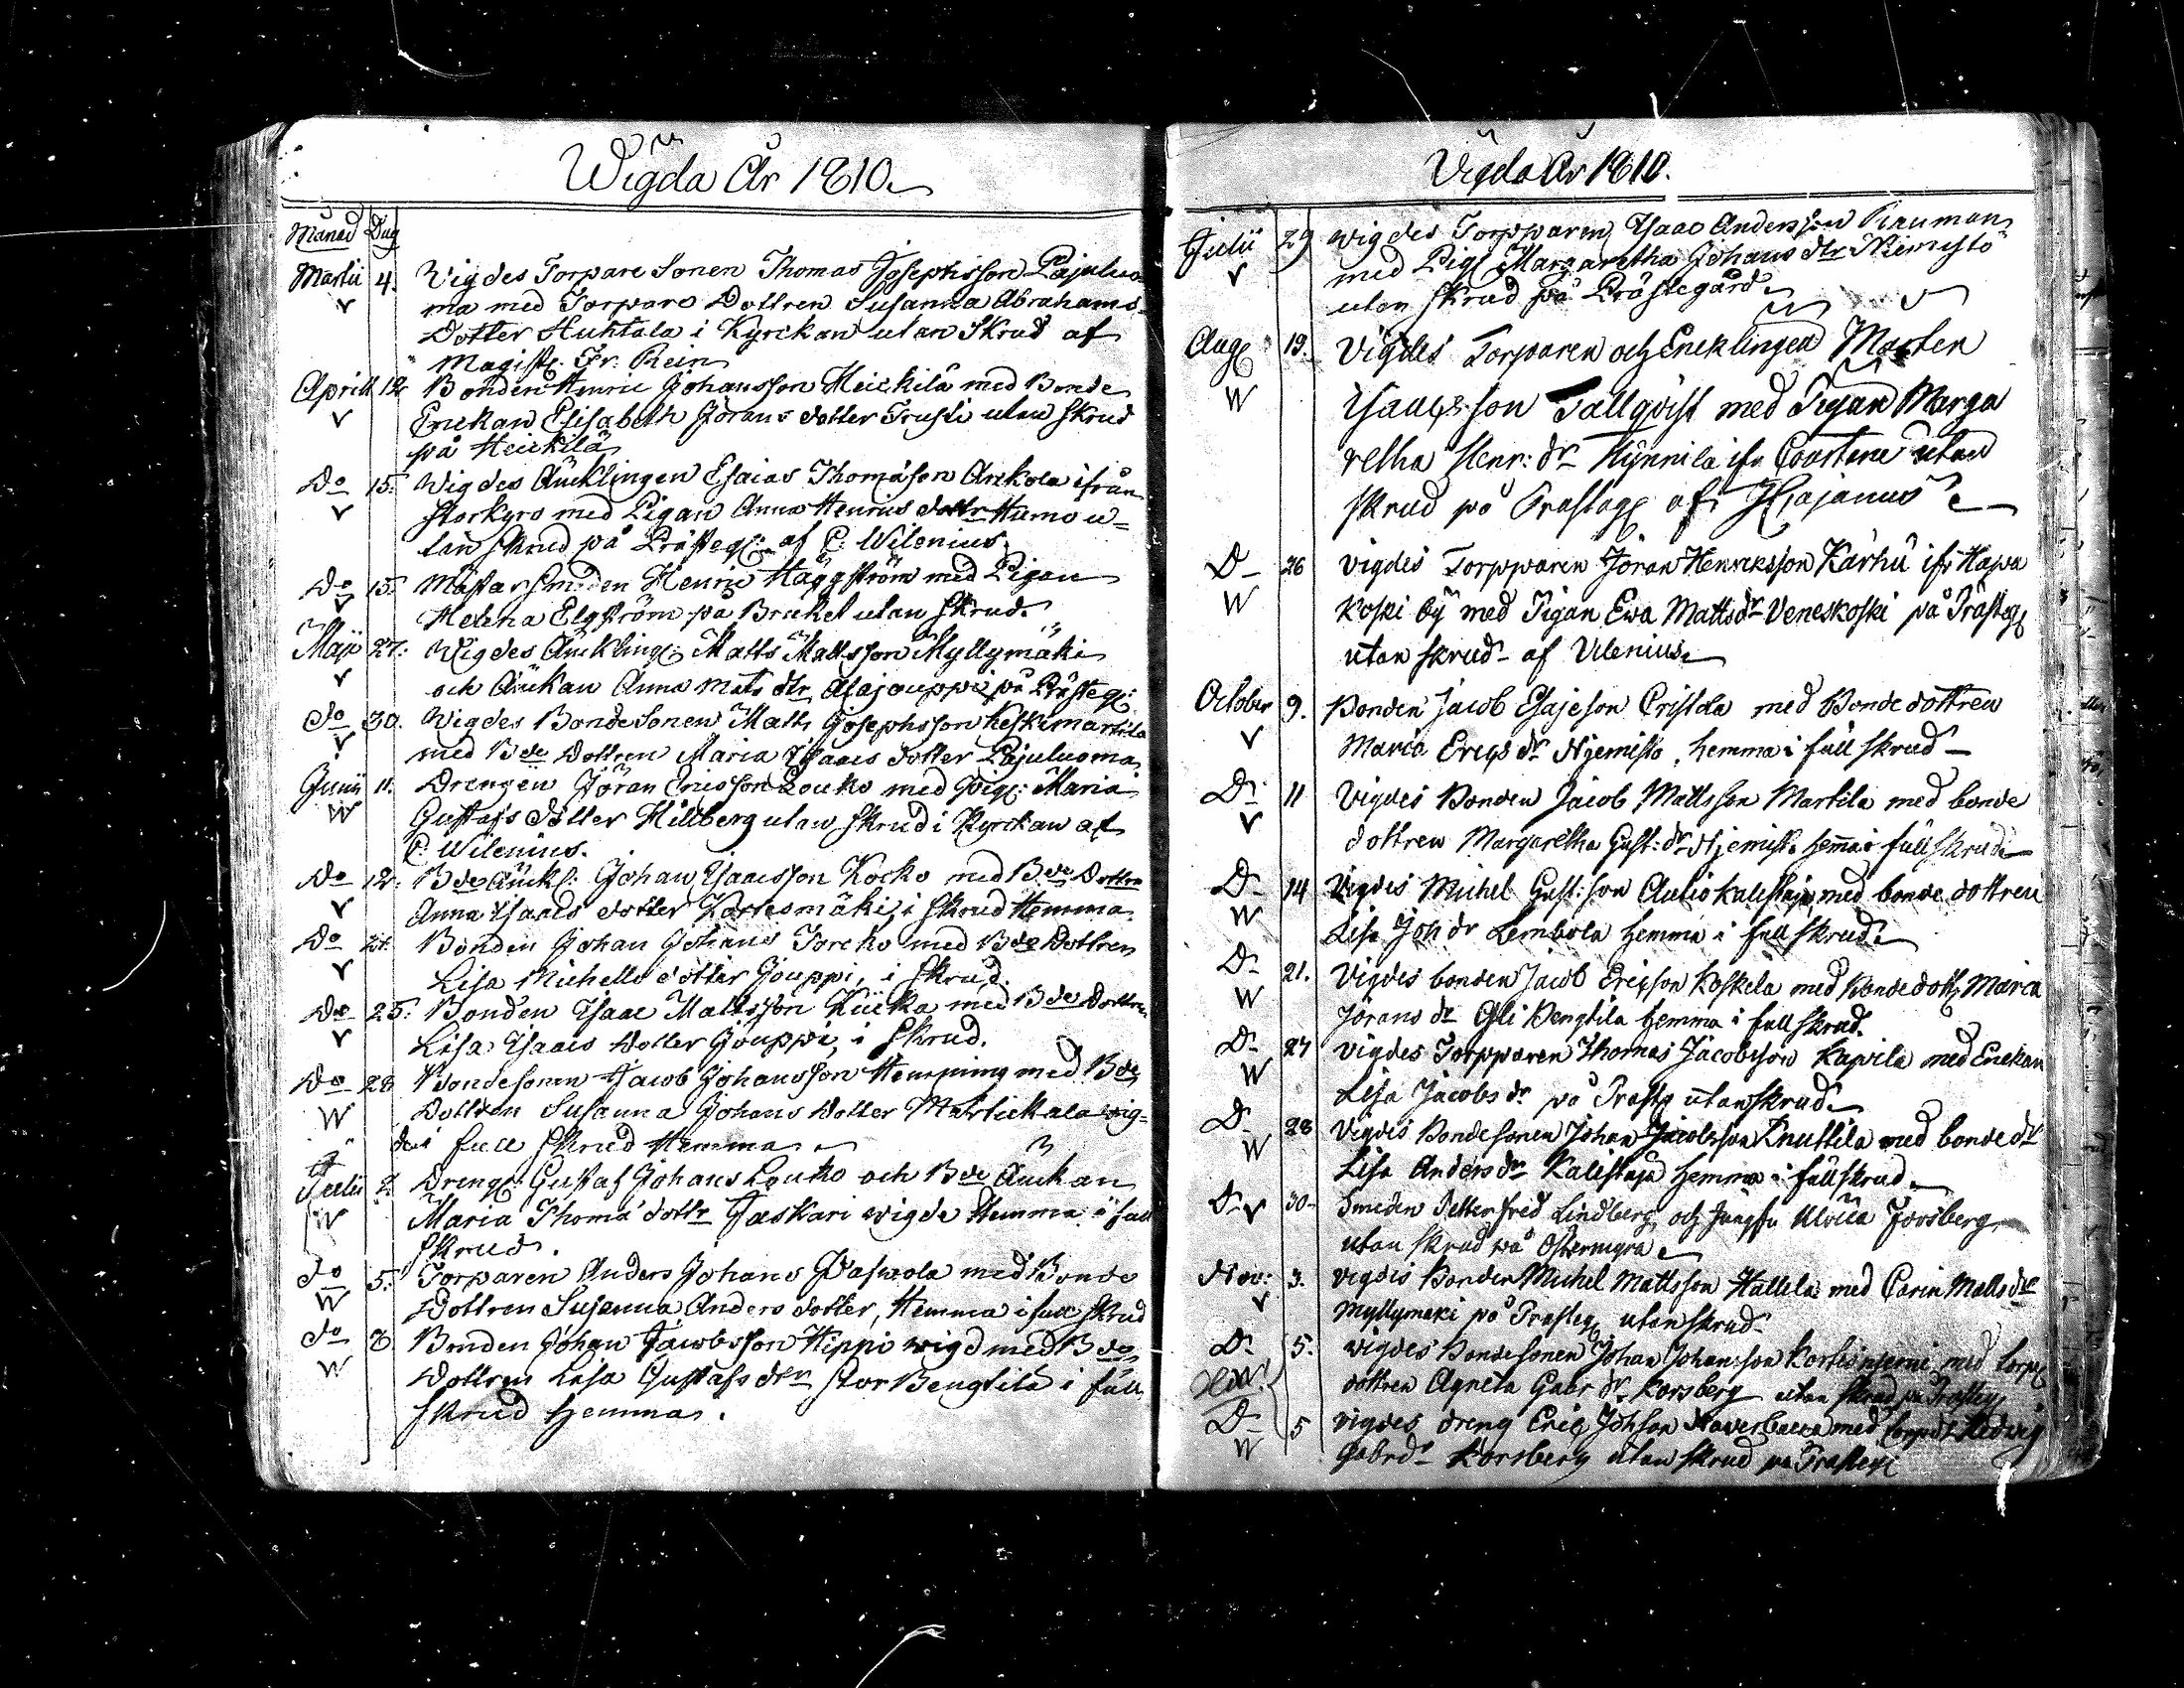 Wigda År 1810.
Månad Dag
Martii 4. Wigdes Torpare Sonen Thomas Josephsson Pajuluo-
ma med Torpare Dottren Susanna Abrahams-
Dotter Huhtala i Kyrckan utan Skrud af
Magist. Fr. Rein
Aprill 12 Bonden Henric Johansson Heickilä med Bonde
Enckan Elisabeth Jörans dotter Trusti utan Skrud
på Heickilä
Do 15. Wigdes Äncklingen Esaias Thomasson Anckola ifrån
Storkyro med Pigan Anna Henrics dottr Humo u=
tan skrud på Prästeg: af C: Wilenius.
Do 15. Mästarsmeden Henric Häggström med Pigan
Helena Elgström på Bruket utan Skrud.
Maji 27. Wigdes Änckling: Matts Mattsson Myllymäki
och Änckan Anna Mats dtr Alajouppi på Prästeg:
do 30. Wigdes Bondesonen Matts Josephsson Keskimartila
med Bde Dottren Maria Isaacs dotter Pajuluoma
Junii 11. Drengen Jöran Ericsson Louko med Pig: Maria
Gustafs Dotter Hillberg utan Skrud i Kyrckan af
C: Wilenius.
Do 12. Bde Änckl: Johan Isaacsson Kocko med Bde Dottren
Anna Isaacs dotter Kortesmäki, i Skrud Hemma
Do 21. Bonden Johan Johans Torcko med Bde Dottren
Lisa Michells dotter Jouppi, i Skrud.
Do 25. Bonden Isaac Mattsson Kiicka med Bde Dottren
Lisa Isaacs dotter Jouppi, i Skrud.
Do 28. Bondesonen Jacob Johansson Hemming med Bde
Dottren Susanna Johans dotter Martickala wig-
des i full Skrud Hemma
Julii 2. Dreng: Gustaf Johans Louko och Bde Änckan
Maria Thoma dottr Jaskari wigde Hemma i full
Skrud.
do 5. Torparen Anders Johans med Bonde
Dottren Susanna Anders dotter, Hemma i full Skrud
do 8. Bonden Johan Jacobsson Hippi wigd med Bde
Dottren Lisa Gustafs dtr Stor Bengtila i full
Skrud Hemma.
Vigda År 1810.
Julii 29 Wigdes Torpparen Isaac Andersson Rauman
med Pig: Margaretha Johans dtr Niemistö
utan Skrud på Prästegård
Aug: 19. Vigdes Torparen och Encklingen Marten
Isaacsson Tallqvist med Pigan Marga
retha Henr: dr Hynnila ifr Courtene utan
skrud på Prasteg: af Hajanus
D 26 Vigdes Torpparen Jöran Henricksson Karhu ifr Hapa
koski by med Pigan Ewa Mattsdr Veneskoski på Prästeg:
utan skrud af Vilenius.
October 9. Bonden Jacob Esajeson Cristola med Bonde dottren
Maria Ericsdr Njemistö, hemma i full skrud
D 11 Vigdes Bonden Jacob Mattsson Martila med bonde
dottren Margaretha Gust: dr Njemist: hemma i full skrud
D 14 Vigdes Michel Gust:son Autio Kallistaja med bonde dottren
Lisa Joh dr Lembola hemma i full skrud.
D 21. Vigdes bonden Jacob Ericsson Koskela med bondedott: Maria
Jörans dr Yli Bengtila hemma i full skrud.
D 27 Vigdes Torpparen Thomas Jacobsson Kapila med Enckan
Lisa Jacobs dr på Prasteg utan skrud.
D 28 Vigdes Bondesonen Johan Jacobsson Knuttila med bonde dr
Lisa Anders dr Kallistaja hemma i full skrud.
D 30 Smeden Petter Fred Lindberg och Jungfu Ulrica Forsberg
utan skrud på Östermyra
Nov: 3. Vigdes Bonden Michel Mattsson Hallila med Carin Matts dr
Myllymeki på Prasteg utan skrud
D 5. Vigdes Bondesonen Johan Johansson Kortesniemi med torp:
dottren Agneta Gabr dr Korsberg utan skrud på Prasteg:
D 5 Vigdes dreng Eric Johsson Haverbacca med Hedvig
Gabrdr Korsberg utan skrud på Prasteg: